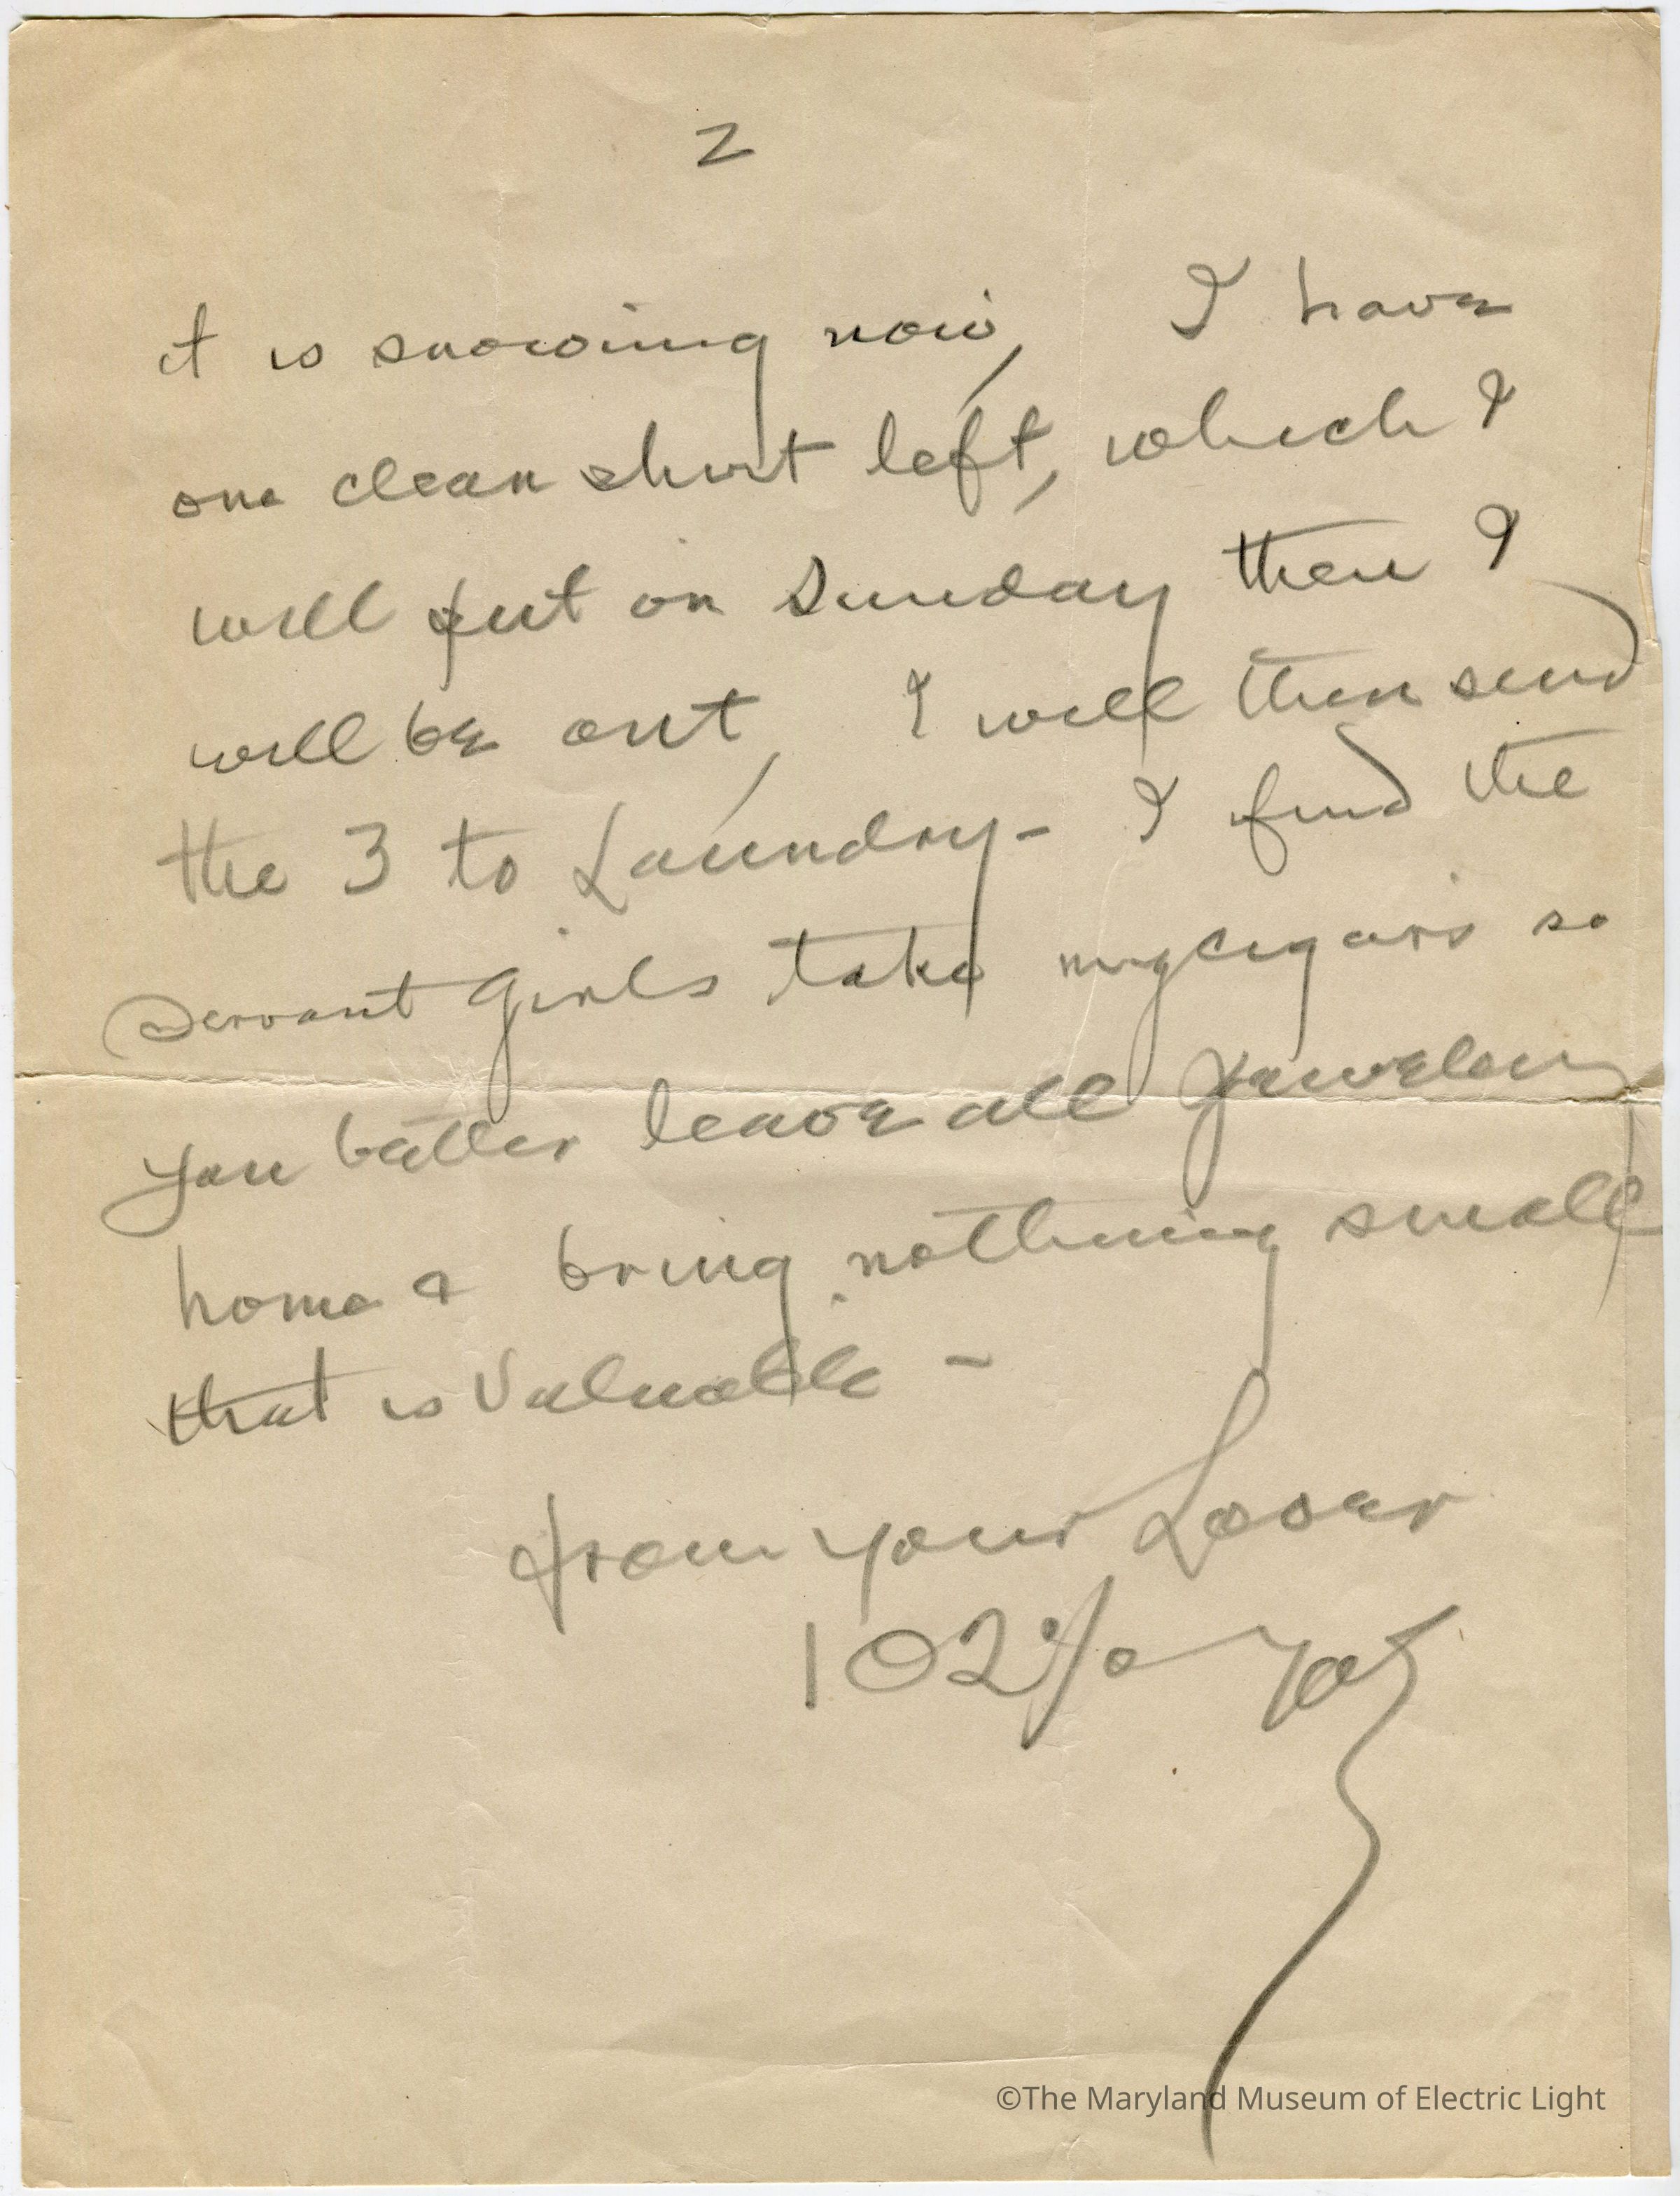 2
it is snowing now, I have
one clean shirt left, which I
will put on Sunday then I
will be out, I will then send
the 3 to Laundry - I find the
servant girls take my cigars so
you better leave all Jewelery
home & bring nothing small
that is Valuable -
from your Lover
102%
©The Maryland Museum of Electric Light